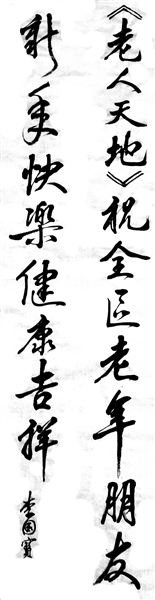 《老人天地》祝全区老年朋友
新年快樂健康吉祥
李国宾